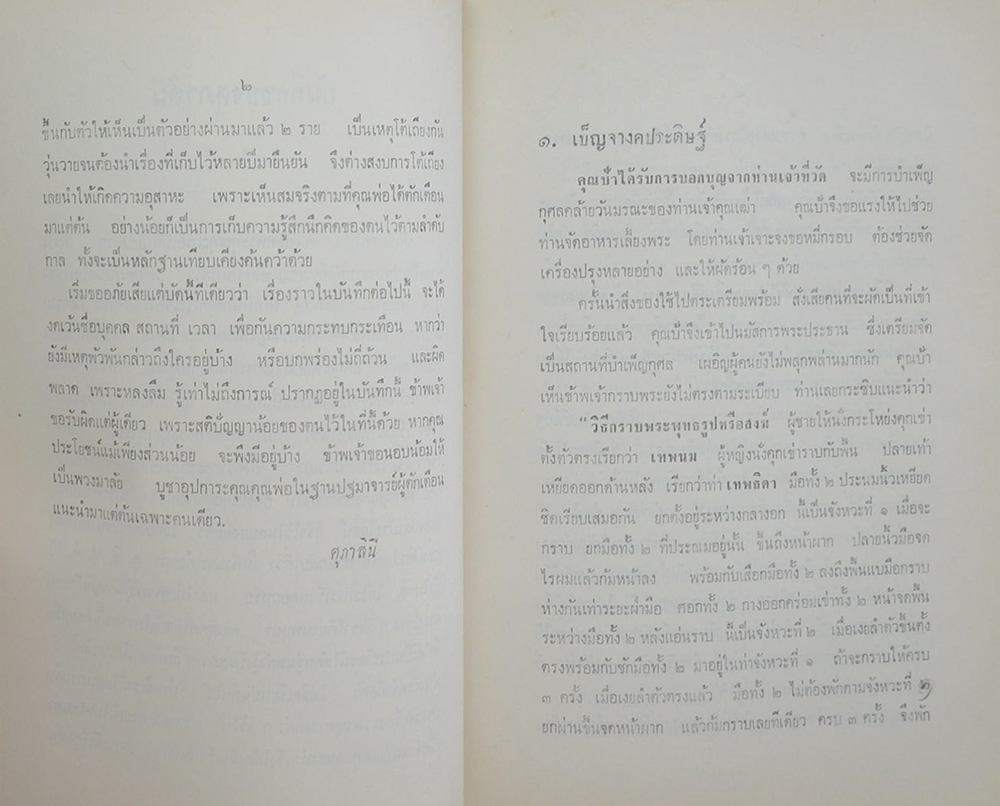 ๒
ขึ้นกับตัวให้เห็นเป็นตัวอย่างผ่านมาแล้ว ๒ ราย เป็นเหตุโต้เถียงกัน
วุ่นวายจนต้องนำเรื่องที่เก็บไว้หลายปีมายืนยัน จึงต่างสงบการโต้เถียง
เลยนำให้เกิดความอุสาหะ เพราะเห็นสมจริงตามที่คุณพ่อได้ตักเตือน
มาแต่ต้น อย่างน้อยก็เป็นการเก็บความรู้สึกนึกคิดของตนไว้ตามลำดับ
กาล ทั้งจะเป็นหลักฐานเทียบเคียงค้นคว้าด้วย
เริ่มขออภัยเสียแต่บัดนี้ทีเดียวว่า เรื่องราวในบันทึกต่อไปนี้ จะได้
งดเว้นชื่อบุคคล สถานที่ เวลา เพื่อกันความกระทบกระเทือน หากว่า
ยังมีเหตุพัวพันกล่าวถึงใครอยู่บ้าง หรือบกพร่องไม่ถี่ถ้วน และผิด
พลาด เพราะหลงลืม รู้เท่าไม่ถึงการณ์ ปรากฏอยู่ในบันทึกนี้ ข้าพเจ้า
ขอรับผิดแต่ผู้เดียว เพราะสติปัญญาน้อยของตนไว้ในที่นี้ด้วย หากคุณ
ประโยชน์แม้เพียงส่วนน้อย จะพึงมีอยู่บ้าง ข้าพเจ้าขอนอบน้อมให้
เป็นพวงมาลัย บูชาอุปการะคุณคุณพ่อในฐานปฐมาจารย์ผู้ตักเตือน
แนะนำมาแต่ต้นเฉพาะคนเดียว.
ศุภาสินี
๑. เบ็ญจางคประดิษฐ์
คุณป้าได้รับการบอกบุญจากท่านเจ้าที่วัด จะมีการบำเพ็ญ
กุศลคล้ายวันมรณะของท่านเจ้าคุณเฒ่า คุณป้าจึงขอแรงให้ไปช่วย
ท่านจัดอาหารเลี้ยงพระ โดยท่านเจ้าเจาะจงขอหมี่กรอบ ต้องช่วยจัด
เครื่องปรุงหลายอย่าง และให้ผัดร้อน ๆ ด้วย
ครั้นนำสิ่งของใช้ไปตระเตรียมพร้อม สั่งเสียคนที่จะผัดเป็นที่เข้า
ใจเรียบร้อยแล้ว คุณป้าจึงเข้าไปนมัสการพระประธาน ซึ่งเตรียมจัด
เป็นสถานที่บำเพ็ญกุศล เผอิญผู้คนยังไม่พลุกพล่านมากนัก คุณป้า
เห็นข้าพเจ้ากราบพระยังไม่ตรงตามระเบียบ ท่านเลยกระซิบแนะนำว่า
“วิธีกราบพระพุทธรูปหรือสงฆ์ ผู้ชายให้นั่งกระโหย่งคุกเข่า
ตั้งตัวตรงเรียกว่า เทพนม ผู้หญิงนั่งคุกเข่าราบกับพื้น ปลายเท้า
เหยียดออกด้านหลัง เรียกว่าท่า เทพธิดา มือทั้ง ๒ ประนมนิ้วเหยียด
ชิดเรียบเสมอกัน ยกตั้งอยู่ระหว่างกลางอก นี้เป็นจังหวะที่ ๑ เมื่อจะ
กราบ ยกมือทั้ง ๒ ที่ประณมอยู่นั้น ขึ้นถึงหน้าผาก ปลายนิ้วมือจด
ไรผมแล้วก้มหน้าลง พร้อมกับเสือกมือทั้ง ๒ ลงถึงพื้นแบมือกราบ
ห่างกันเท่าระยะฝ่ามือ ศอกทั้ง ๒ กางออกคร่อมเข่าทั้ง ๒ หน้าจดพื้น
ระหว่างมือทั้ง ๒ หลังแอ่นราบ นี้เป็นจังหวะที่ ๒ เมื่อเงยลำตัวขึ้นตั้ง
ตรงพร้อมกับชักมือทั้ง ๒ มาอยู่ในท่าจังหวะที่ ๑ ถ้าจะกราบให้ครบ
๓ ครั้ง เมื่อเงยลำตัวตรงแล้ว มือทั้ง ๒ ไม่ต้องพักตามจังหวะที่ ๑
ยกผ่านขึ้นจดหน้าผาก แล้วก้มกราบเลยทีเดียว ครบ ๓ ครั้ง จึงพัก